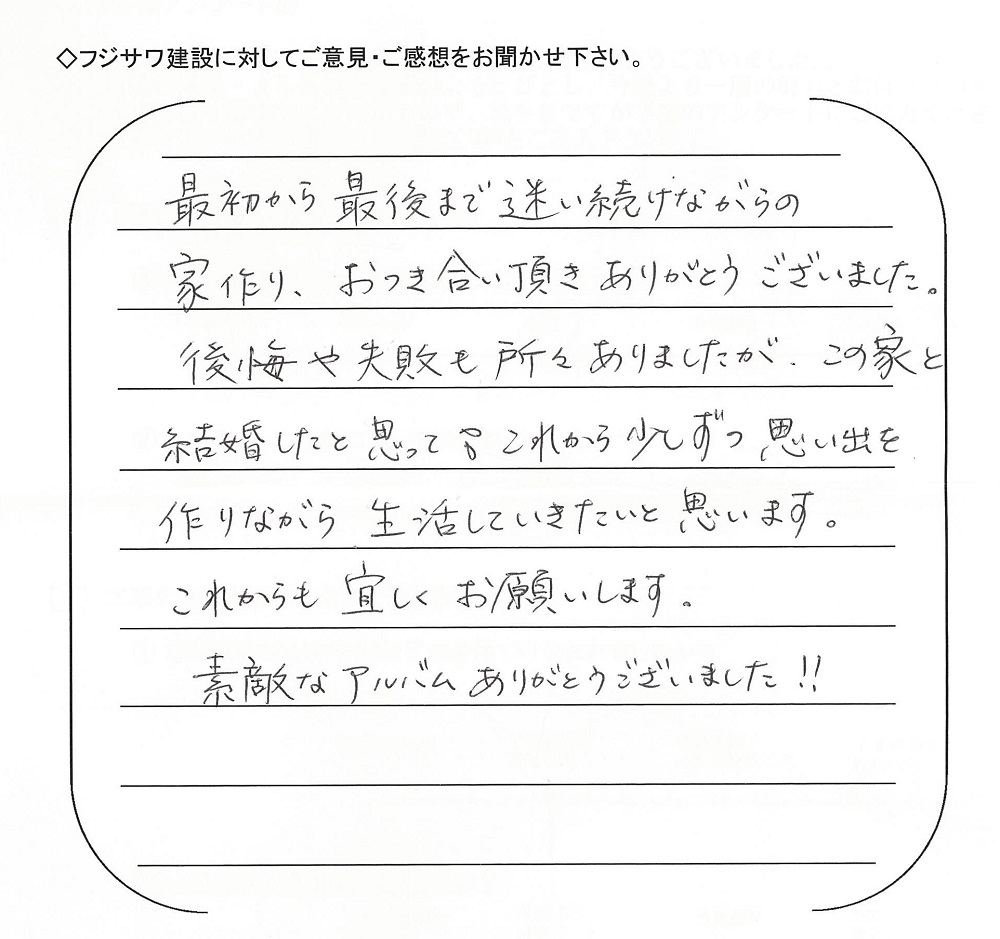 ◇フジサワ建設に対してご意見・ご感想をお聞かせ下さい。
最初から最後まで迷い続けながらの
家作り、おつき合い頂きありがとうございました。
後悔や失敗も所々ありましたが、この家と
結婚したと思って これから少しずつ思い出を
作りながら生活していきたいと思います。
これからも宜しくお願いします。
素敵なアルバムありがとうございました!!